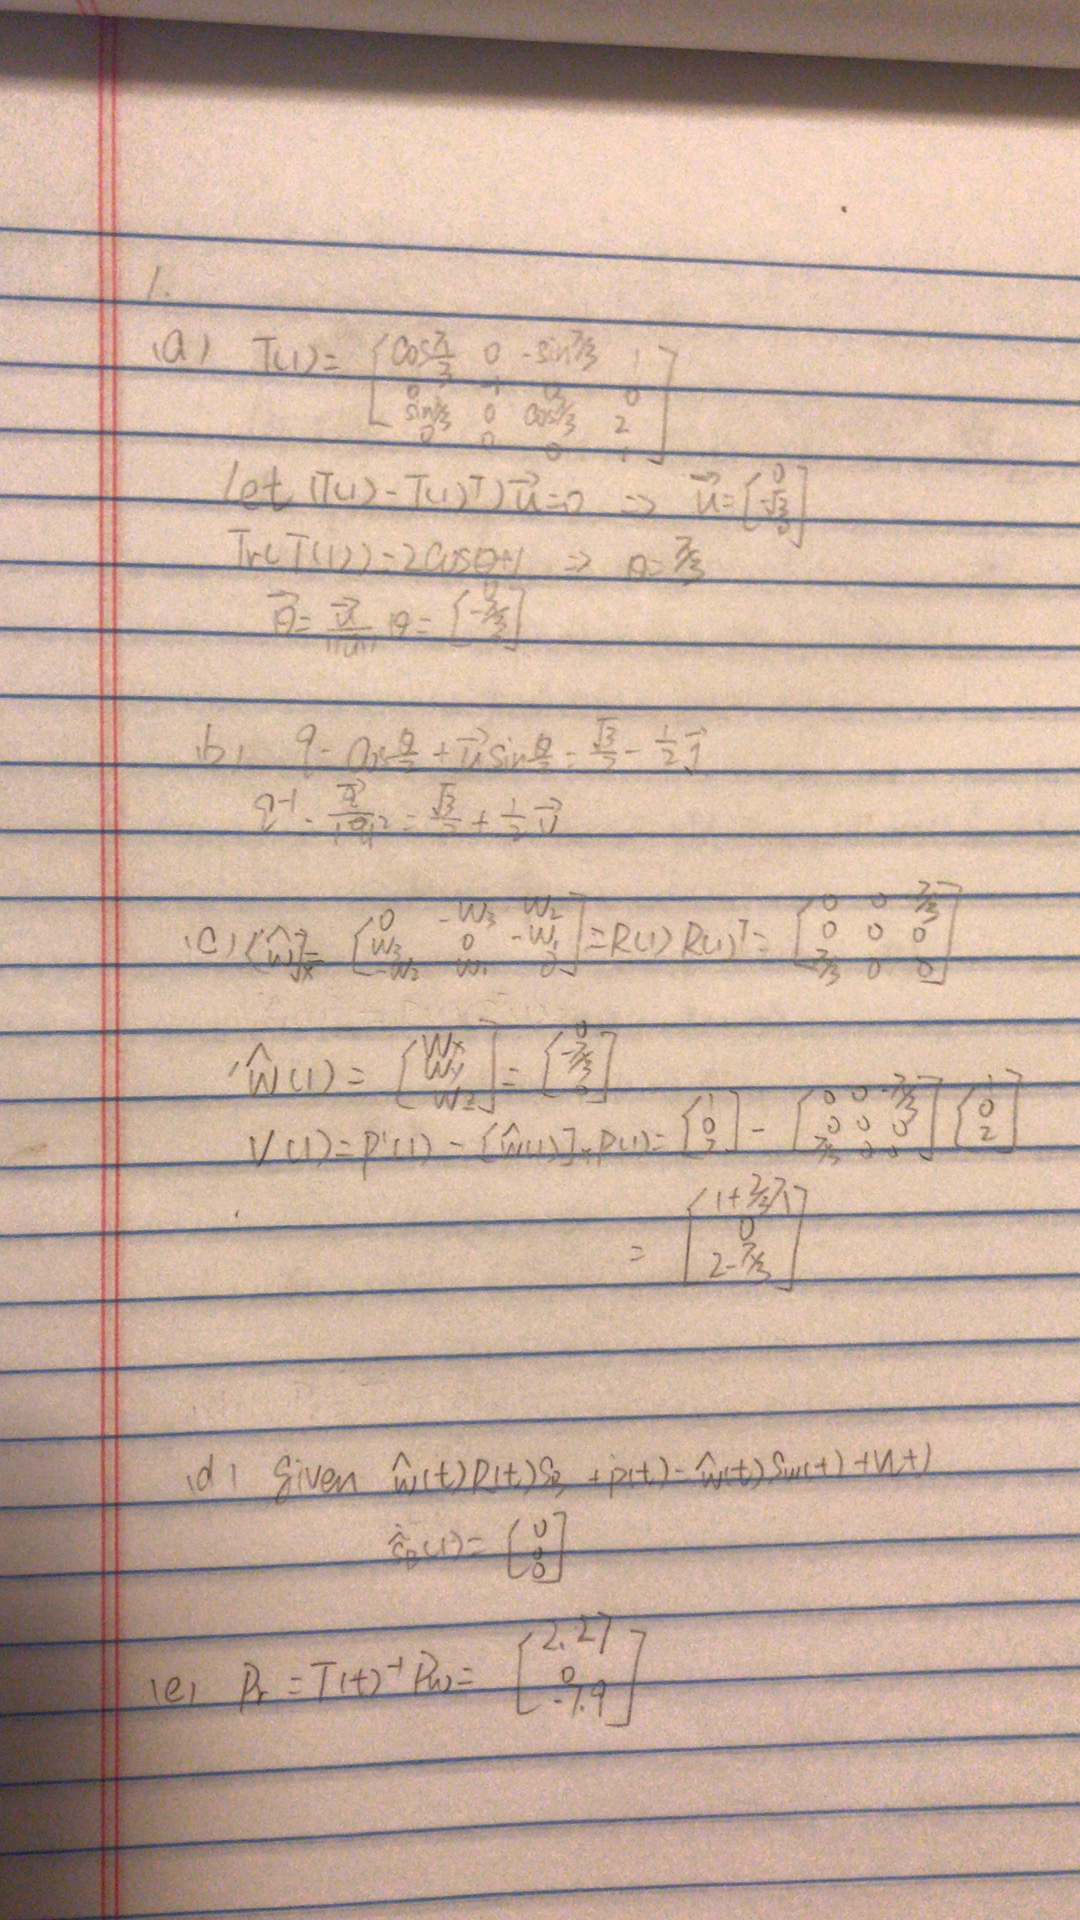 1.
(a) T(1) = [cos π/3 0 -sin π/3 1
0 1 0 0
sin π/3 0 cos π/3 2
0 0 0 1]
let (T(1) - T(1)ᵀ) u⃗ = 0 ⇒ u⃗ = [0 -√3 0]
Tr(T(1)) = 2cosθ+1 ⇒ θ = π/3
θ⃗ = u⃗/||u|| θ = [0 -π/3 0]
(b) q = cos θ/2 + u⃗ sin θ/2 = √3/2 - 1/2 j⃗
q⁻¹ = q̄/|q|² = √3/2 + 1/2 j⃗
(c) [ŵ]ₓ = [0 -W₃ W₂
W₃ 0 -W₁
-W₂ W₁ 0] = Ṙ(1) R(1)ᵀ = [0 0 π/3
0 0 0
π/3 0 0]
ŵ(1) = [Wx Wy Wz] = [0 -π/3 0]
V(1) = p'(1) - [ŵ(1)]ₓ p(1) = [1 0 2] - [0 0 -π/3
0 0 0
π/3 0 0] [1 0 2]
= [1+2/3π
0
2-π/3]
(d) Given ŵ(t)R(t)S_B + ṗ(t) = ŵ(t)Sw(t) + v(t)
(1) = [0 0 0]
(e) Pr = T(t)⁻¹ Pw = [2.27
0
-7.9]